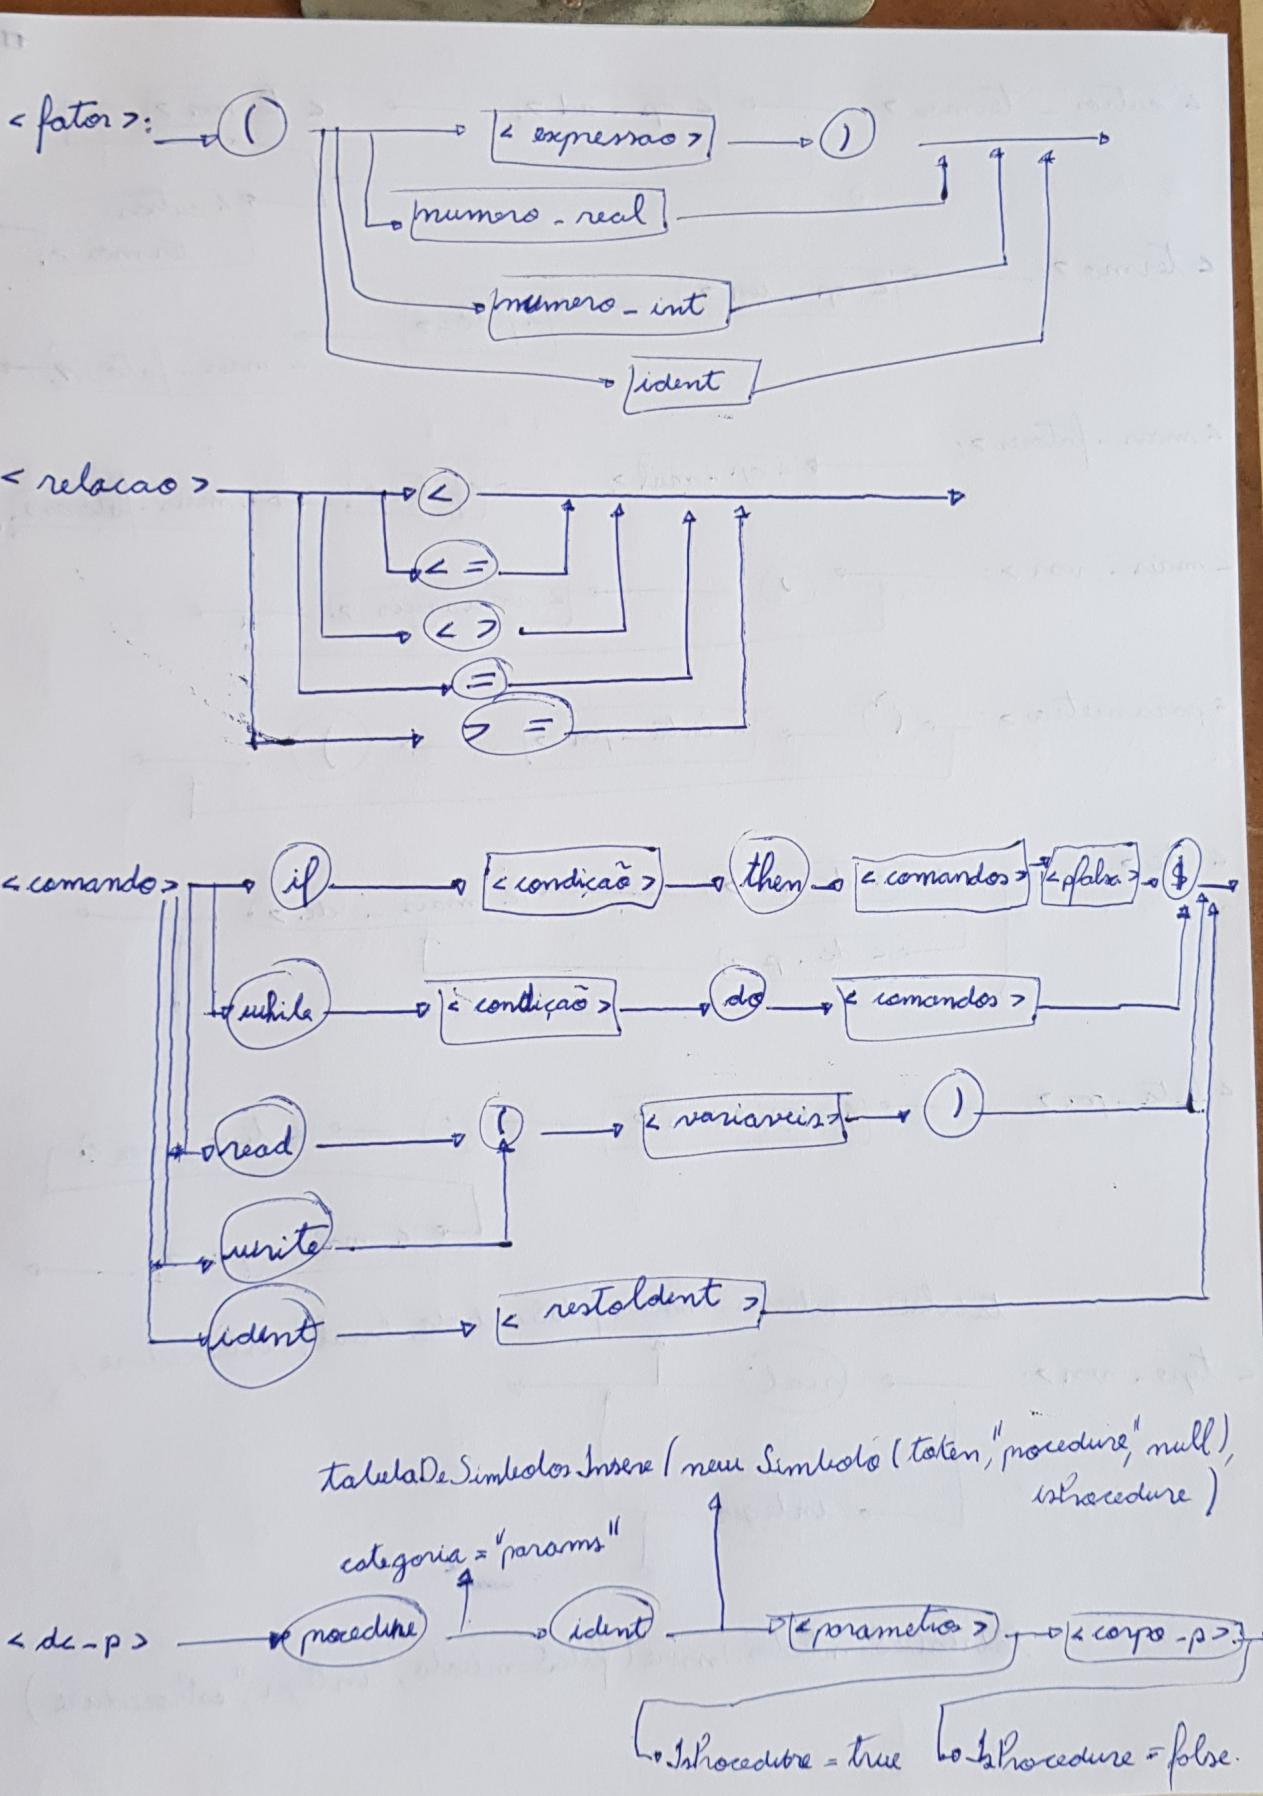 <fator>: ( <expressao> )
numero_real
numero_int
ident
<relacao> <
<=
<>
=
>=
<comando> if <condição> then <comandos> <pfalsa> $
while <condição> do <comandos>
read ( <variaveis> )
write
ident <restoIdent>
tabelaDeSimbolos.Insere(new Simbolo(token,"procedure", null),
isProcedure)
categoria = "params"
<dc_p> procedure ident <parametros> <corpo_p>
IsProcedure = true IsProcedure = false.